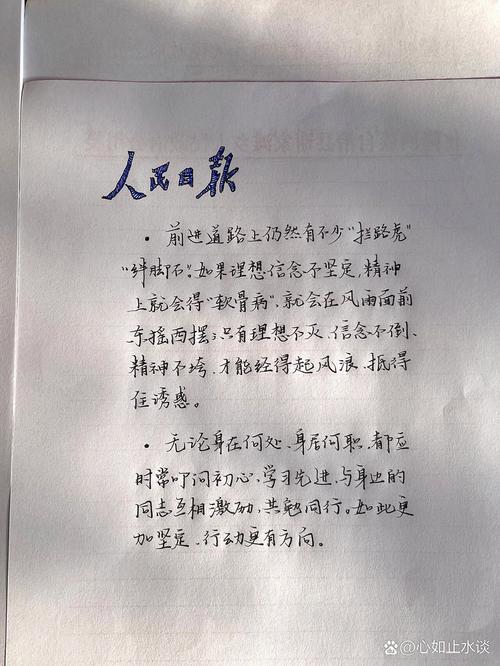 人民日报
· 前进道路上仍然有不少"拦路虎"
"绊脚石"。如果理想信念不坚定,精神
上就会得"软骨病",就会在风雨面前
东摇西摆;只有理想不灭、信念不倒、
精神不垮,才能经得起风浪、抵得
住诱惑。
· 无论身在何处、身居何职,都应
时常叩问初心,学习先进,与身边的
同志互相激励,共勉同行。如此更
加坚定、行动更有方向。
心如止水谈